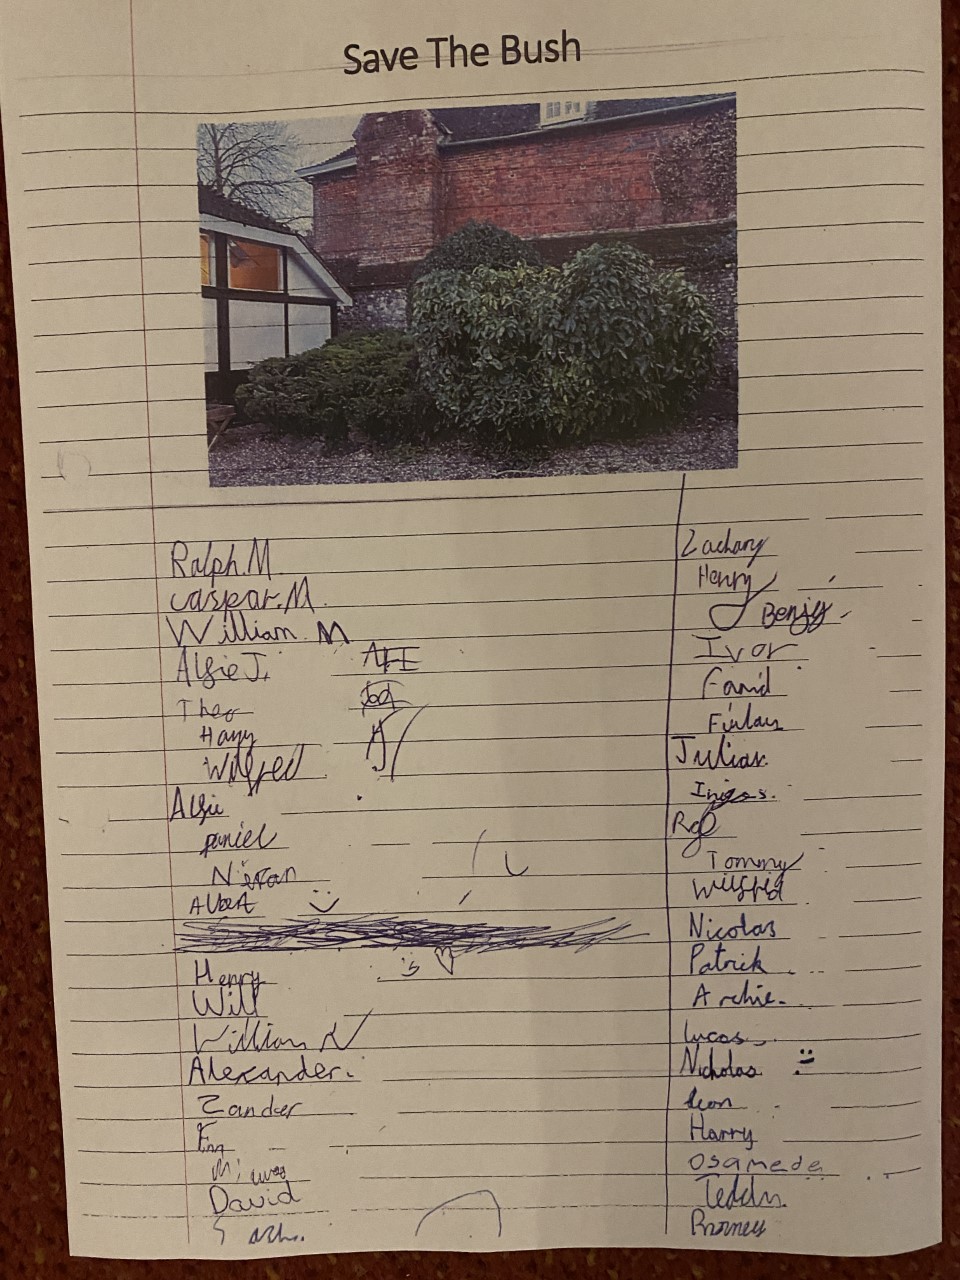 Save The Bush
Ralph.M
Caspar.M.
William. M
Alfie J.
Theo
Harry
Wilfred
Alfie
Daniel
Albert
Henry
Will
William N
Alexander.
Zander
David
Zachary
Henry
Benjy
Ivor
Farid
Finlay
Julian
Tommy
Wilfrid
Nicolas
Patrick
Archie.
Lucas
Nicholas
Leon
Harry
Osamede
Teddy.
Barney